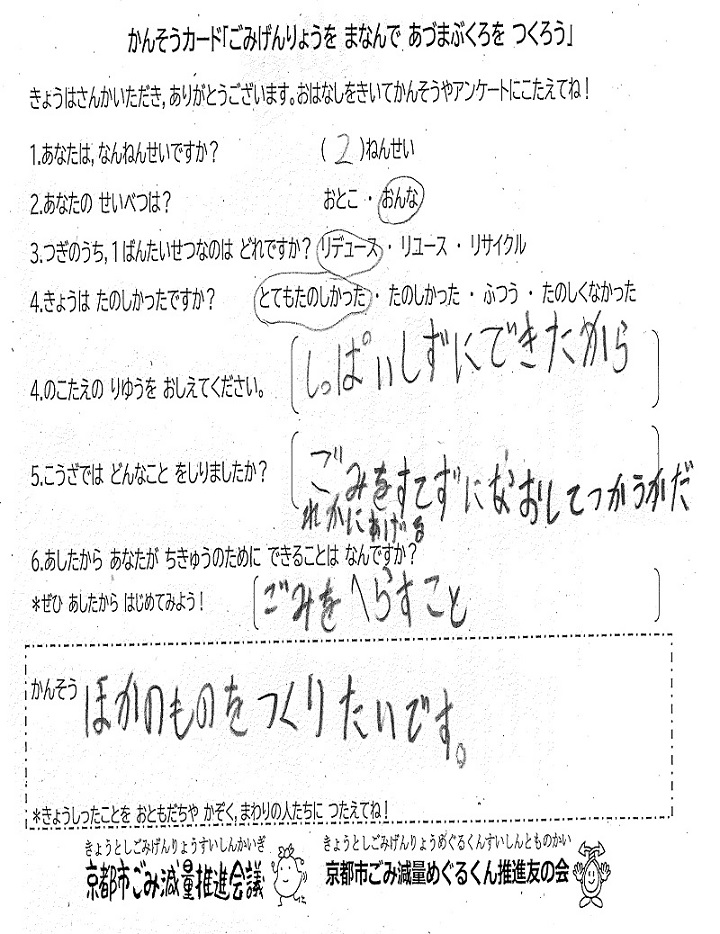 かんそうカード「ごみげんりょうを まなんで あづまぶくろを つくろう」
きょうはさんかいただき,ありがとうございます。おはなしをきいてかんそうやアンケートにこたえてね!
1.あなたは,なんねんせいですか? (2)ねんせい
2.あなたの せいべつは? おとこ・おんな
3.つぎのうち,1ばんたいせつなのは どれですか? リデュース・リユース・リサイクル
4.きょうは たのしかったですか? とてもたのしかった・たのしかった・ふつう・たのしくなかった
4.のこたえの りゆうを おしえてください。 (しっぱいしずにできたから)
5.こうざでは どんなこと をしりましたか? (ごみをすてずになおしてつかうかだ
れかにあげる)
6.あしたから あなたが ちきゅうのために できることは なんですか?
*ぜひ あしたから はじめてみよう! (ごみをへらすこと)
かんそう ほかのものをつくりたいです。
*きょうしったことを おともだちや かぞく,まわりの人たちに つたえてね!
きょうとしごみげんりょうすいしんかいぎ きょうとしごみげんりょうめぐるくんすいしんとものかい
京都市ごみ減量推進会議 京都市ごみ減量めぐるくん推進友の会